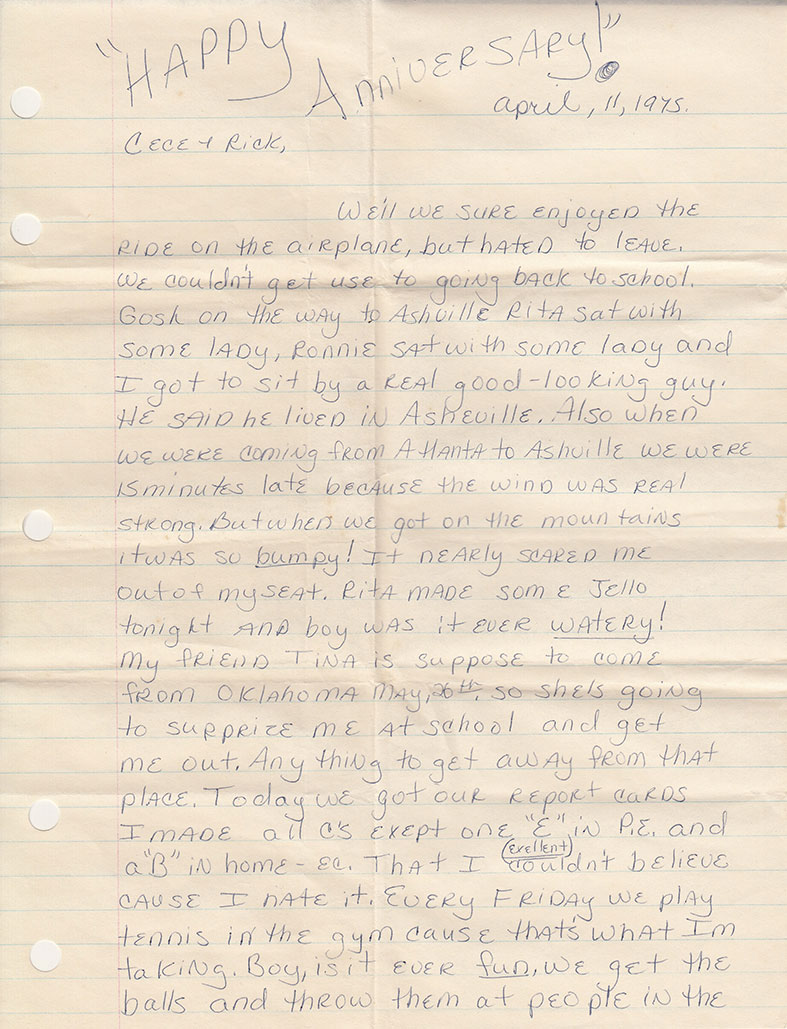 "HAPPY Anniversary!"
april, 11, 1975.
Cece + Rick,
We'll we sure enjoyed the
ride on the airplane, but hated to leave.
We couldn't get use to going back to school.
Gosh on the way to Ashville Rita sat with
some lady, Ronnie sat with some lady and
I got to sit by a real good-looking guy.
He said he lived in Asheville. Also when
we were coming from Atlanta to Ashville we were
15 minutes late because the wind was real
strong. But when we got on the mountains
it was so bumpy! It nearly scared me
out of my seat. Rita made some Jello
tonight and boy was it ever watery!
My friend Tina is suppose to come
from Oklahoma May, 26th, so she's going
to surprize me at school and get
me out. Any thing to get away from that
place. Today we got our report cards
I made all C's exept one "E" in P.E. and
(exellent)
a "B" in home-ec. That I couldn't believe
cause I hate it. Every Friday we play
tennis in the gym cause that's what Im
taking. Boy, is it ever fun, we get the
balls and throw them at people in the